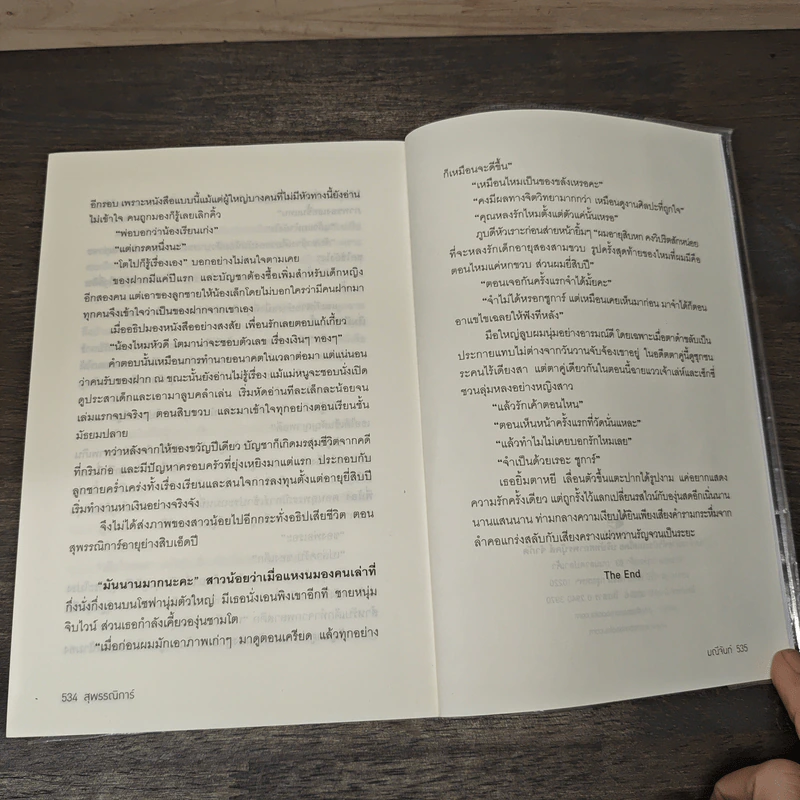 อีกรอบ เพราะหนังสือแบบนี้แม้แต่ผู้ใหญ่บางคนที่ไม่มีหัวทางนี้ยังอ่าน
ไม่เข้าใจ คนถูกมองก็รู้เลยเลิกคิ้ว
“พ่อบอกว่าน้องเรียนเก่ง”
“แต่เกรดหนึ่งนะ”
“โตไปก็รู้เรื่องเอง” บอกอย่างไม่สนใจตามเคย
ของฝากมีแค่ปีแรก และบัญชาต้องซื้อเพิ่มสำหรับเด็กหญิง
อีกสองคน แต่เอาของลูกชายให้น้องเล็กโดยไม่บอกใครว่ามีคนฝากมา
ทุกคนจึงเข้าใจว่าเป็นของฝากจากเขาเอง
เมื่ออธิปมองหนังสืออย่างสงสัย เพื่อนรักเลยตอบแก้เกี้ยว
“น้องไหมหัวดี โตมาน่าจะชอบตัวเลข เรื่องเงินๆ ทองๆ”
คำตอบนั้นเหมือนการทำนายอนาคตในเวลาต่อมา แต่แน่นอน
ว่าคนรับของฝาก ณ ขณะนั้นยังอ่านไม่รู้เรื่อง แม้แม่หนูจะชอบนั่งเปิด
ดูประสาเด็กและเอามาลูบคลำเล่น เริ่มหัดอ่านทีละเล็กละน้อยจน
เล่มแรกจบจริงๆ ตอนสิบขวบ และมาเข้าใจทุกอย่างตอนเรียนชั้น
มัธยมปลาย
ทว่าหลังจากให้ของขวัญปีเดียว บัญชาก็เกิดมรสุมชีวิตจากคดี
ที่กรินก่อ และมีปัญหาครอบครัวที่ยุ่งเหยิงมาแต่แรก ประกอบกับ
ลูกชายคร่ำเคร่งทั้งเรื่องเรียนและสนใจการลงทุนตั้งแต่อายุยี่สิบปี
เริ่มทำงานหาเงินอย่างจริงจัง
จึงไม่ได้ส่งภาพของสาวน้อยไปอีกกระทั่งอธิปเสียชีวิต ตอน
สุพรรณิการ์อายุย่างสิบเอ็ดปี
“มันนานมากนะคะ” สาวน้อยว่าเมื่อแหงนมองคนเล่าที่
กึ่งนั่งกึ่งเอนบนโซฟานุ่มตัวใหญ่ มีเธอนั่งเอนพิงเขาอีกที ชายหนุ่ม
จิบไวน์ ส่วนเธอกำลังเคี้ยวองุ่นชามโต
“เมื่อก่อนผมมักเอาภาพเก่าๆ มาดูตอนเครียด แล้วทุกอย่าง
534 สุพรรณิการ์
ก็เหมือนจะดีขึ้น”
“เหมือนไหมเป็นของขลังเหรอคะ”
“คงมีผลทางจิตวิทยามากกว่า เหมือนดูงานศิลปะที่ถูกใจ”
“คุณหลงรักไหมตั้งแต่ตัวแค่นั้นเหรอ”
ภูบดีหัวเราะก่อนส่ายหน้ายิ้มๆ “ผมอายุสิบหก คงวิปริตสักหน่อย
ที่จะหลงรักเด็กอายุสองสามขวบ รูปครั้งสุดท้ายของไหมที่ผมมีคือ
ตอนไหมแค่หกขวบ ส่วนผมยี่สิบปี”
“ตอนเจอกันครั้งแรกจำได้มั้ยคะ”
“จำไม่ได้หรอกชูการ์ แต่เหมือนเคยเห็นมาก่อน มาจำได้ก็ตอน
อาแขไขเฉลยให้ฟังทีหลัง”
มือใหญ่ลูบผมนุ่มอย่างอารมณ์ดี โดยเฉพาะเมื่อตาดำขลับเป็น
ประกายแทบไม่ต่างจากวันวานจับจ้องเขาอยู่ ในอดีตตาคู่นี้ดูซุกซน
ระคนไร้เดียงสา แต่ตาคู่เดียวกันในตอนนี้ฉายแววเจ้าเล่ห์และเซ็กซี่
ชวนลุ่มหลงอย่างหญิงสาว
“แล้วรักเค้าตอนไหน”
“ตอนเห็นหน้าครั้งแรกที่วัดนั่นแหละ”
“แล้วทำไมไม่เคยบอกไรักไหมเลย”
“จำเป็นด้วยเรอะ ชูการ์”
เธอยิ้มตาหยี เลื่อนตัวขึ้นแตะปากได้รูปงาม แค่อยากแสดง
ความรักครั้งเดียว แต่ถูกรั้งไว้แลกเปลี่ยนรสไวน์กับองุ่นสดอีกเนิ่นนาน
นานแสนนาน ท่ามกลางความเงียบได้ยินเพียงเสียงคำรามกระหึ่มจาก
ลำคอแกร่งสลับกับเสียงครางแผ่วหวานรัญจวนเป็นระยะ
The End
มณีจันท์ 535